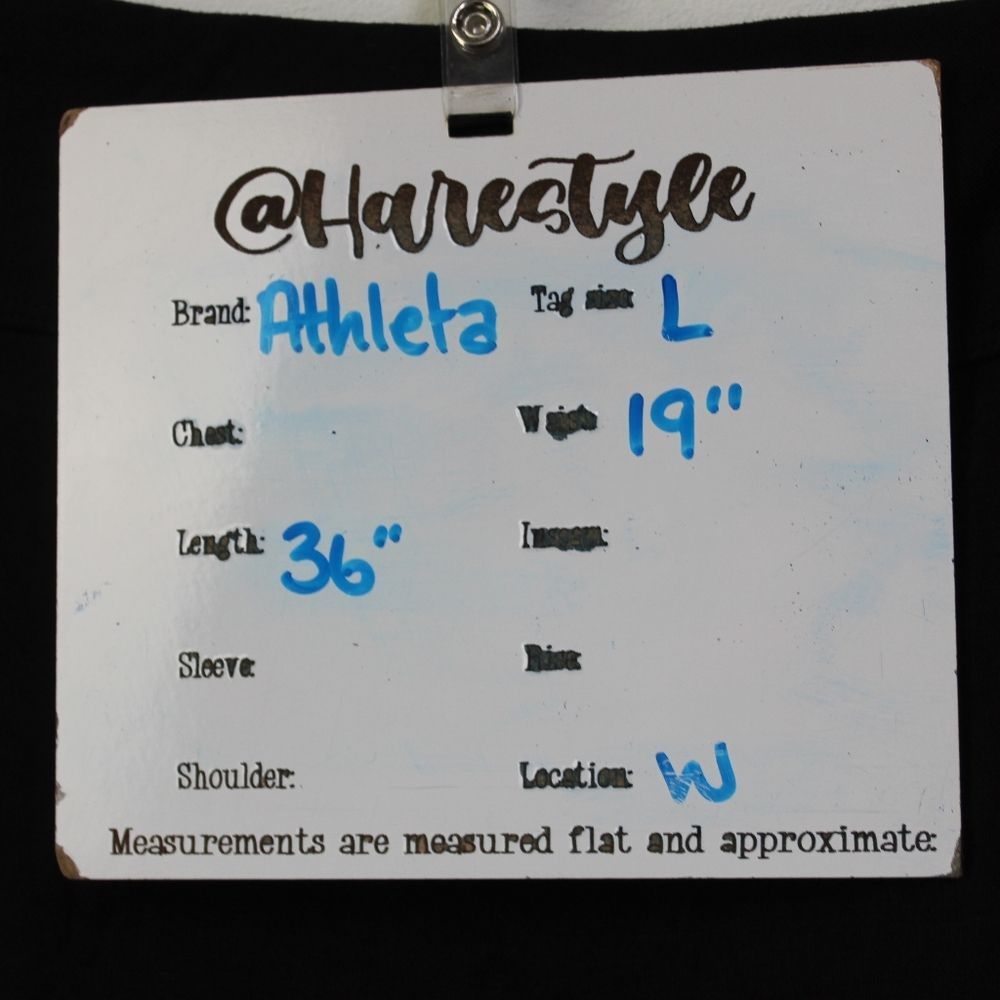 @Harestyle
Brand: Athleta Tag size: L
Chest: Waist: 19"
Length: 36" Inseam:
Sleeve: Rise:
Shoulder: Location: W
Measurements are measured flat and approximate.